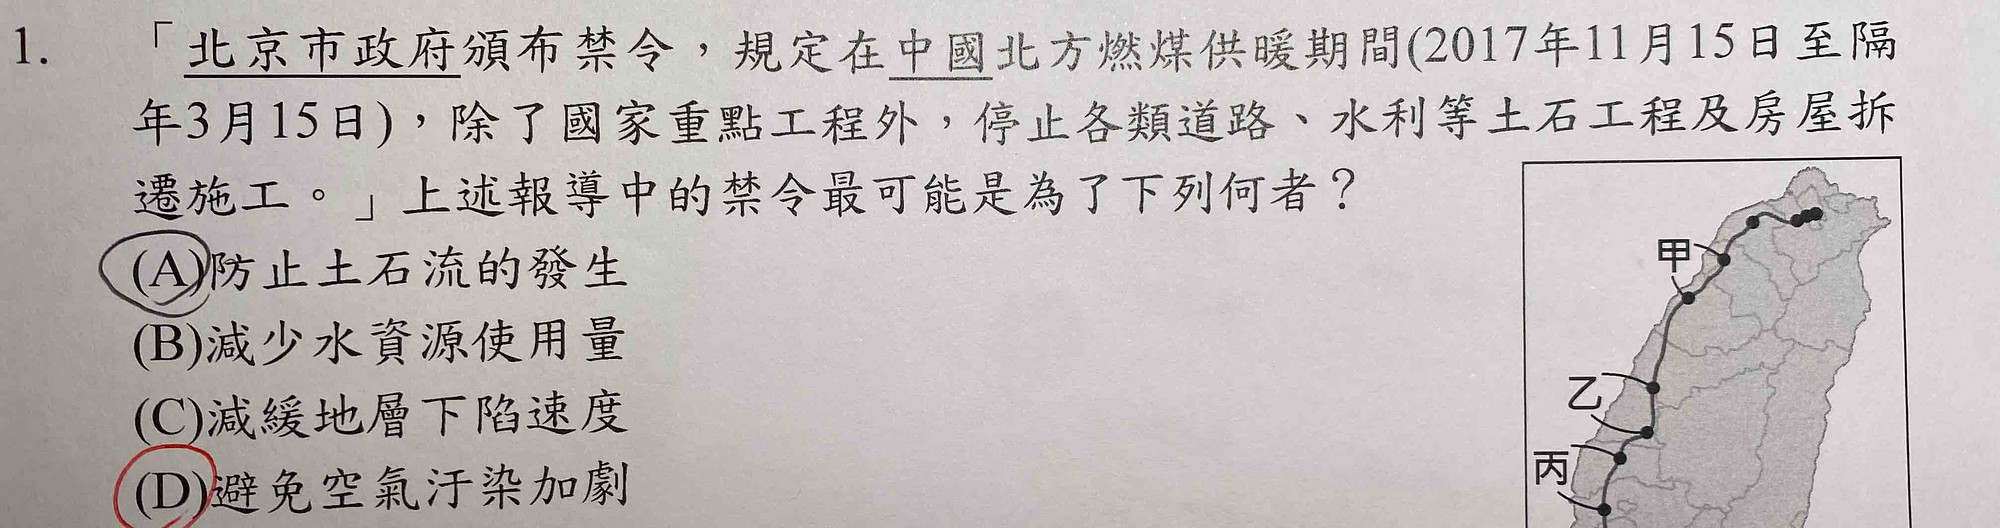 1. 「北京市政府頒布禁令，規定在中國北方燃煤供暖期間(2017年11月15日至隔
年3月15日)，除了國家重點工程外，停止各類道路、水利等土石工程及房屋拆
遷施工。」上述報導中的禁令最可能是為了下列何者？
(A)防止土石流的發生
(B)減少水資源使用量
(C)減緩地層下陷速度
(D)避免空氣汙染加劇
甲
乙
丙